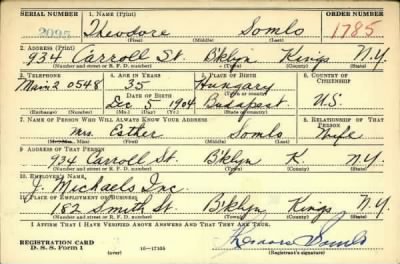 SERIAL NUMBER 1. NAME (Print) ORDER NUMBER
2095 Theodore Somlo 1785
(First) (Middle) (Last)
2. ADDRESS (Print)
934 Carroll St. B'klyn Kings N.Y.
(Number and street or R. F. D. number) (Town) (County) (State)
3. TELEPHONE 4. AGE IN YEARS 5. PLACE OF BIRTH 6. COUNTRY OF CITIZENSHIP
Main 2 0548 35 Hungary
DATE OF BIRTH (Town or county)
Dec 5 1904 Budapest U.S.
(Exchange) (Number) (Mo.) (Day) (Yr.) (State or country)
7. NAME OF PERSON WHO WILL ALWAYS KNOW YOUR ADDRESS 8. RELATIONSHIP OF THAT PERSON
Mrs. Esther Somlo Wife
(Mr., Mrs., Miss) (First) (Middle) (Last)
9. ADDRESS OF THAT PERSON
934 Carroll St. B'klyn K. N.Y.
(Number and street or R. F. D. number) (Town) (County) (State)
10. EMPLOYER'S NAME
J. Michaels Inc.
11. PLACE OF EMPLOYMENT OR BUSINESS
182 Smith St B'klyn Kings N.Y.
(Number and street or R. F. D. number) (Town) (County) (State)
I AFFIRM THAT I HAVE VERIFIED ABOVE ANSWERS AND THAT THEY ARE TRUE.
REGISTRATION CARD
D. S. S. Form 1 (over) 16—17105 Theodore Somlo
(Registrant's signature)